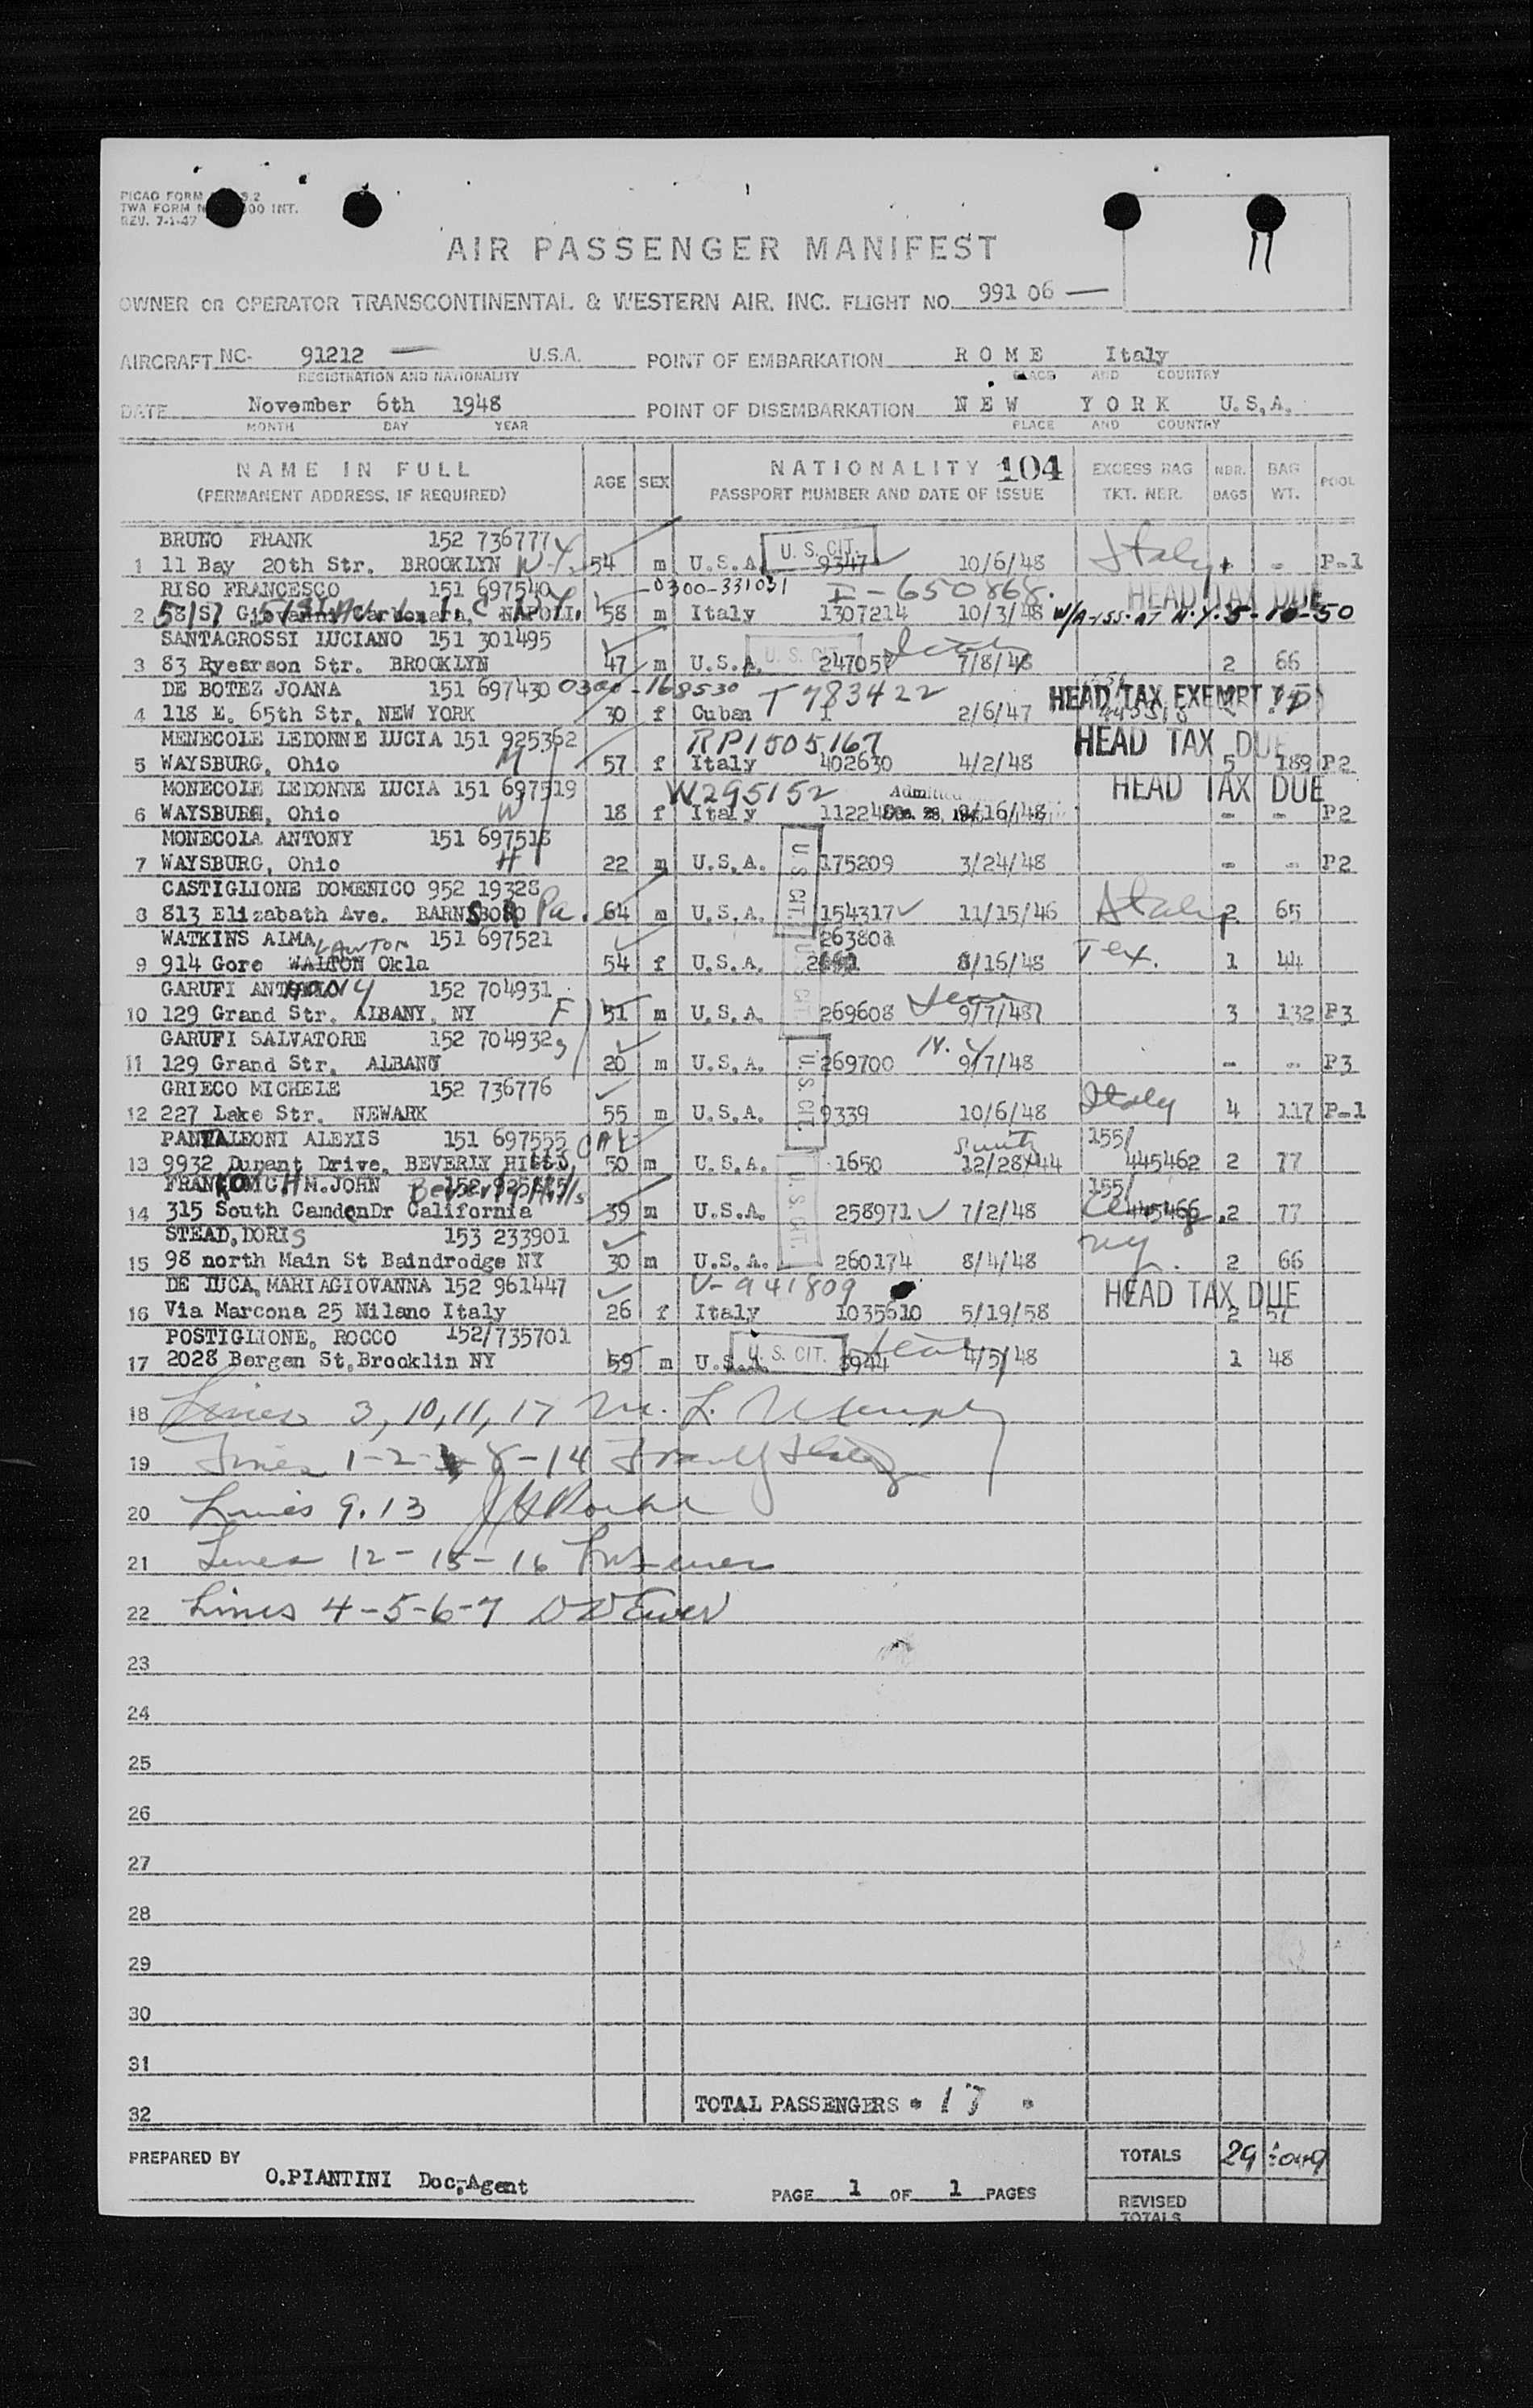 PICAO FORM
TWA FORM 
REV. 7-1-47
AIR PASSENGER MANIFEST
OWNER OR OPERATOR TRANSCONTINENTAL & WESTERN AIR, INC. FLIGHT NO. 991 06 —
AIRCRAFT NC- 91212 — U.S.A. POINT OF EMBARKATION R O M E Italy
REGISTRATION AND NATIONALITY PLACE AND COUNTRY
DATE November 6th 1948 POINT OF DISEMBARKATION N E W Y O R K U.S.A.
MONTH DAY YEAR PLACE AND COUNTRY
NAME IN FULL AGE SEX NATIONALITY 104 EXCESS BAG NBR. BAG POOL
(PERMANENT ADDRESS, IF REQUIRED) PASSPORT NUMBER AND DATE OF ISSUE TKT. NBR. BAGS WT.
BRUNO FRANK 152 736777 U. S. CIT.
1 11 Bay 20th Str. BROOKLYN N.Y. 54 m U.S.A. 9347 10/6/48 Italy - P-1
RISO FRANCESCO 151 697540 0300-331031 I-650868. HEAD TAX DUE
2 NAPOLI. 58 m Italy 1307214 10/3/48 N.Y. 5-10-50
SANTAGROSSI LUCIANO 151 301495 U. S. CIT.
3 83 Ryearson Str. BROOKLYN 47 m U.S.A. 247057 7/8/48 2 66
DE BOTEZ JOANA 151 697430 0300-168530 T 783422 HEAD TAX EXEMPT
4 118 E. 65th Str. NEW YORK 30 f Cuban 1 2/6/47
MENECOLE LEDONNE LUCIA 151 925362 RP1505167 HEAD TAX DUE
5 WAYSBURG, Ohio M 57 f Italy 402630 4/2/48 5 189 P2
MONECOLE LEDONNE LUCIA 151 697519 W295152 Admitted HEAD TAX DUE
6 WAYSBURH, Ohio W 18 f Italy /16/48 - - P2
MONECOLA ANTONY 151 697518
7 WAYSBURG, Ohio H 22 m U.S.A. U.S CIT. 175209 3/24/48 - - P2
CASTIGLIONE DOMENICO 952 19328
8 813 Elizabath Ave. BARNSBORO Pa. 64 m U.S.A. 154317 11/15/46 Italy 2 65
WATKINS ALMA LAWTON 151 697521 263801
9 914 Gore WALTON Okla 54 f U.S.A. U.S CIT. 8/16/48 Tex. 1 44
GARUFI ANTHONY 152 704931
10 129 Grand Str. ALBANY, NY F 51 m U.S.A. 269608 9/7/48 3 132 P3
GARUFI SALVATORE 152 704932 S N.Y
11 129 Grand Str. ALBANY 20 m U.S.A. 269700 9/7/48 - - P3
GRIECO MICHELE 152 736776 U.S CIT.
12 227 Lake Str. NEWARK 55 m U.S.A. 9339 10/6/48 Italy 4 117 P-1
PANTALEONI ALEXIS 151 697555 CAL 155/
13 9932 Durant Drive. BEVERLY HILLS, 50 m U.S.A. 1650 12/28/44 445462 2 77
FRANKOVICH M.JOHN Beverly Hills 155/
14 315 South CamdenDr California 39 m U.S.A. U.S CIT. 258971 7/2/48 445466 2 77
STEAD,DORIS 153 233901 NY.
15 98 north Main St Baindrodge NY 30 m U.S.A. 260174 8/4/48 2 66
DE LUCA, MARIAGIOVANNA 152 961447 V-941809 HEAD TAX DUE
16 Via Marcona 25 Nilano Italy 26 f Italy 1035610 5/19/58 2 57
POSTIGLIONE, ROCCO 152/735701 U. S. CIT.
17 2028 Bergen St,Brooklin NY 59 m U.S.A. 3944 4/5/48 1 48
18 Lines 3, 10, 11, 17 M. L. Murphy
19 Lines 1-2- 8-14
20 Lines 9.13
21 Lines 12-15-16
22 Lines 4-5-6-7
23
24
25
26
27
28
29
30
31
TOTAL PASSENGERS * 17 *
32
PREPARED BY TOTALS 29
O.PIANTINI Doc,Agent PAGE 1 OF 1 PAGES REVISED
TOTALS